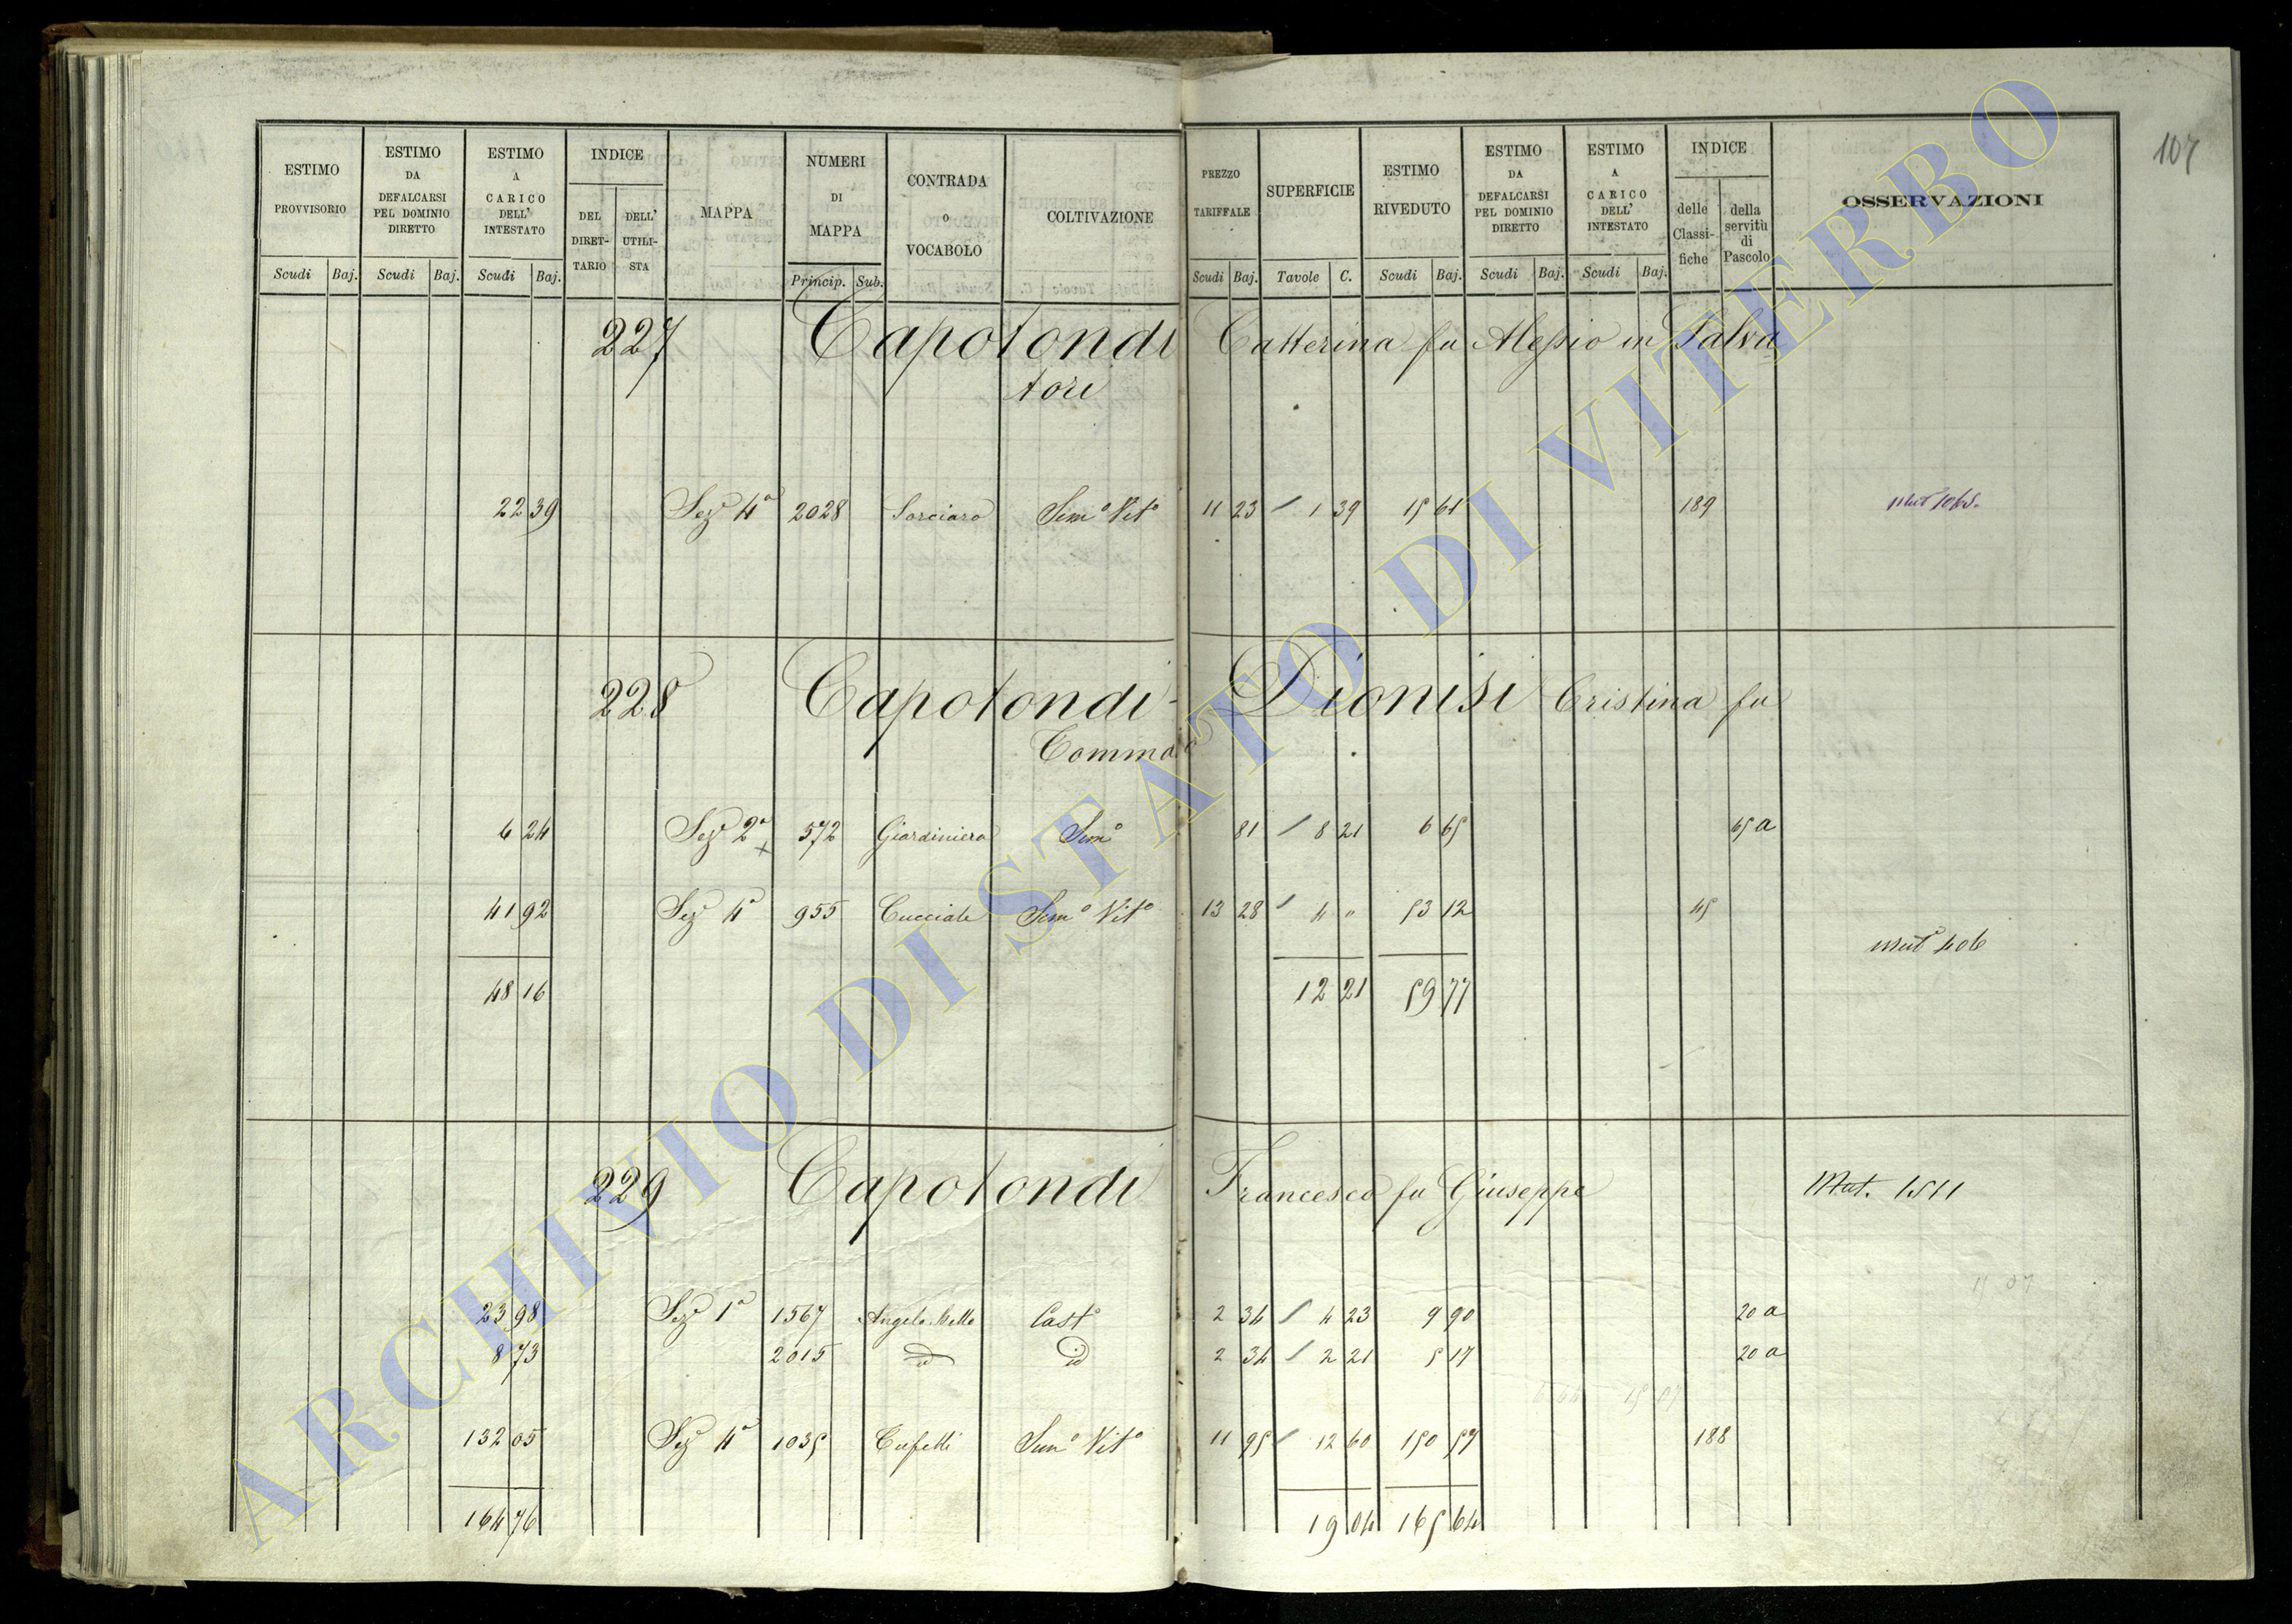 107
ESTIMO PROVVISORIO Scudi Baj.
ESTIMO DA DEFALCARSI PEL DOMINIO DIRETTO Scudi Baj.
ESTIMO A CARICO DELL' INTESTATO Scudi Baj.
INDICE DEL DIRETTARIO DELL' UTILISTA
MAPPA
NUMERI DI MAPPA Princip. Sub.
CONTRADA O VOCABOLO
COLTIVAZIONE
PREZZO TARIFFALE Scudi Baj.
SUPERFICIE Tavole C.
ESTIMO RIVEDUTO Scudi Baj.
ESTIMO DA DEFALCARSI PEL DOMINIO DIRETTO Scudi Baj.
ESTIMO A CARICO DELL' INTESTATO Scudi Baj.
INDICE delle Classifiche della servitù di Pascolo
OSSERVAZIONI
227 Capotondi Catterina fu Alessio in Salva
tori
22 39 Sezᵉ 4ª 2028 Sorciaro Semº Vitº 11 23 1 39 15 61 189
228 Capotondi - Dionisi Cristina fu
Tommaso
6 24 Sezᵉ 2ª 572 Giardiniera Semº 81 8 21 6 65 65 a
41 92 Sezᵉ 4ª 955 Cucciale Semº Vitº 13 28 4 " 53 12 45
Mutº 406
48 16 12 21 59 77
229 Capotondi Francesco fu Giuseppe Mut. 1511
23 98 Sezᵉ 1ª 1567 Angelo Mello Castº 2 34 4 23 9 90 20 a
8 73 2015 id id 2 34 2 21 5 17 20 a
132 05 Sezᵉ 4ª 1035 Cufelli Semº Vitº 11 95 12 60 150 57 188
164 76 19 04 165 64
ARCHIVIO DI STATO DI VITERBO